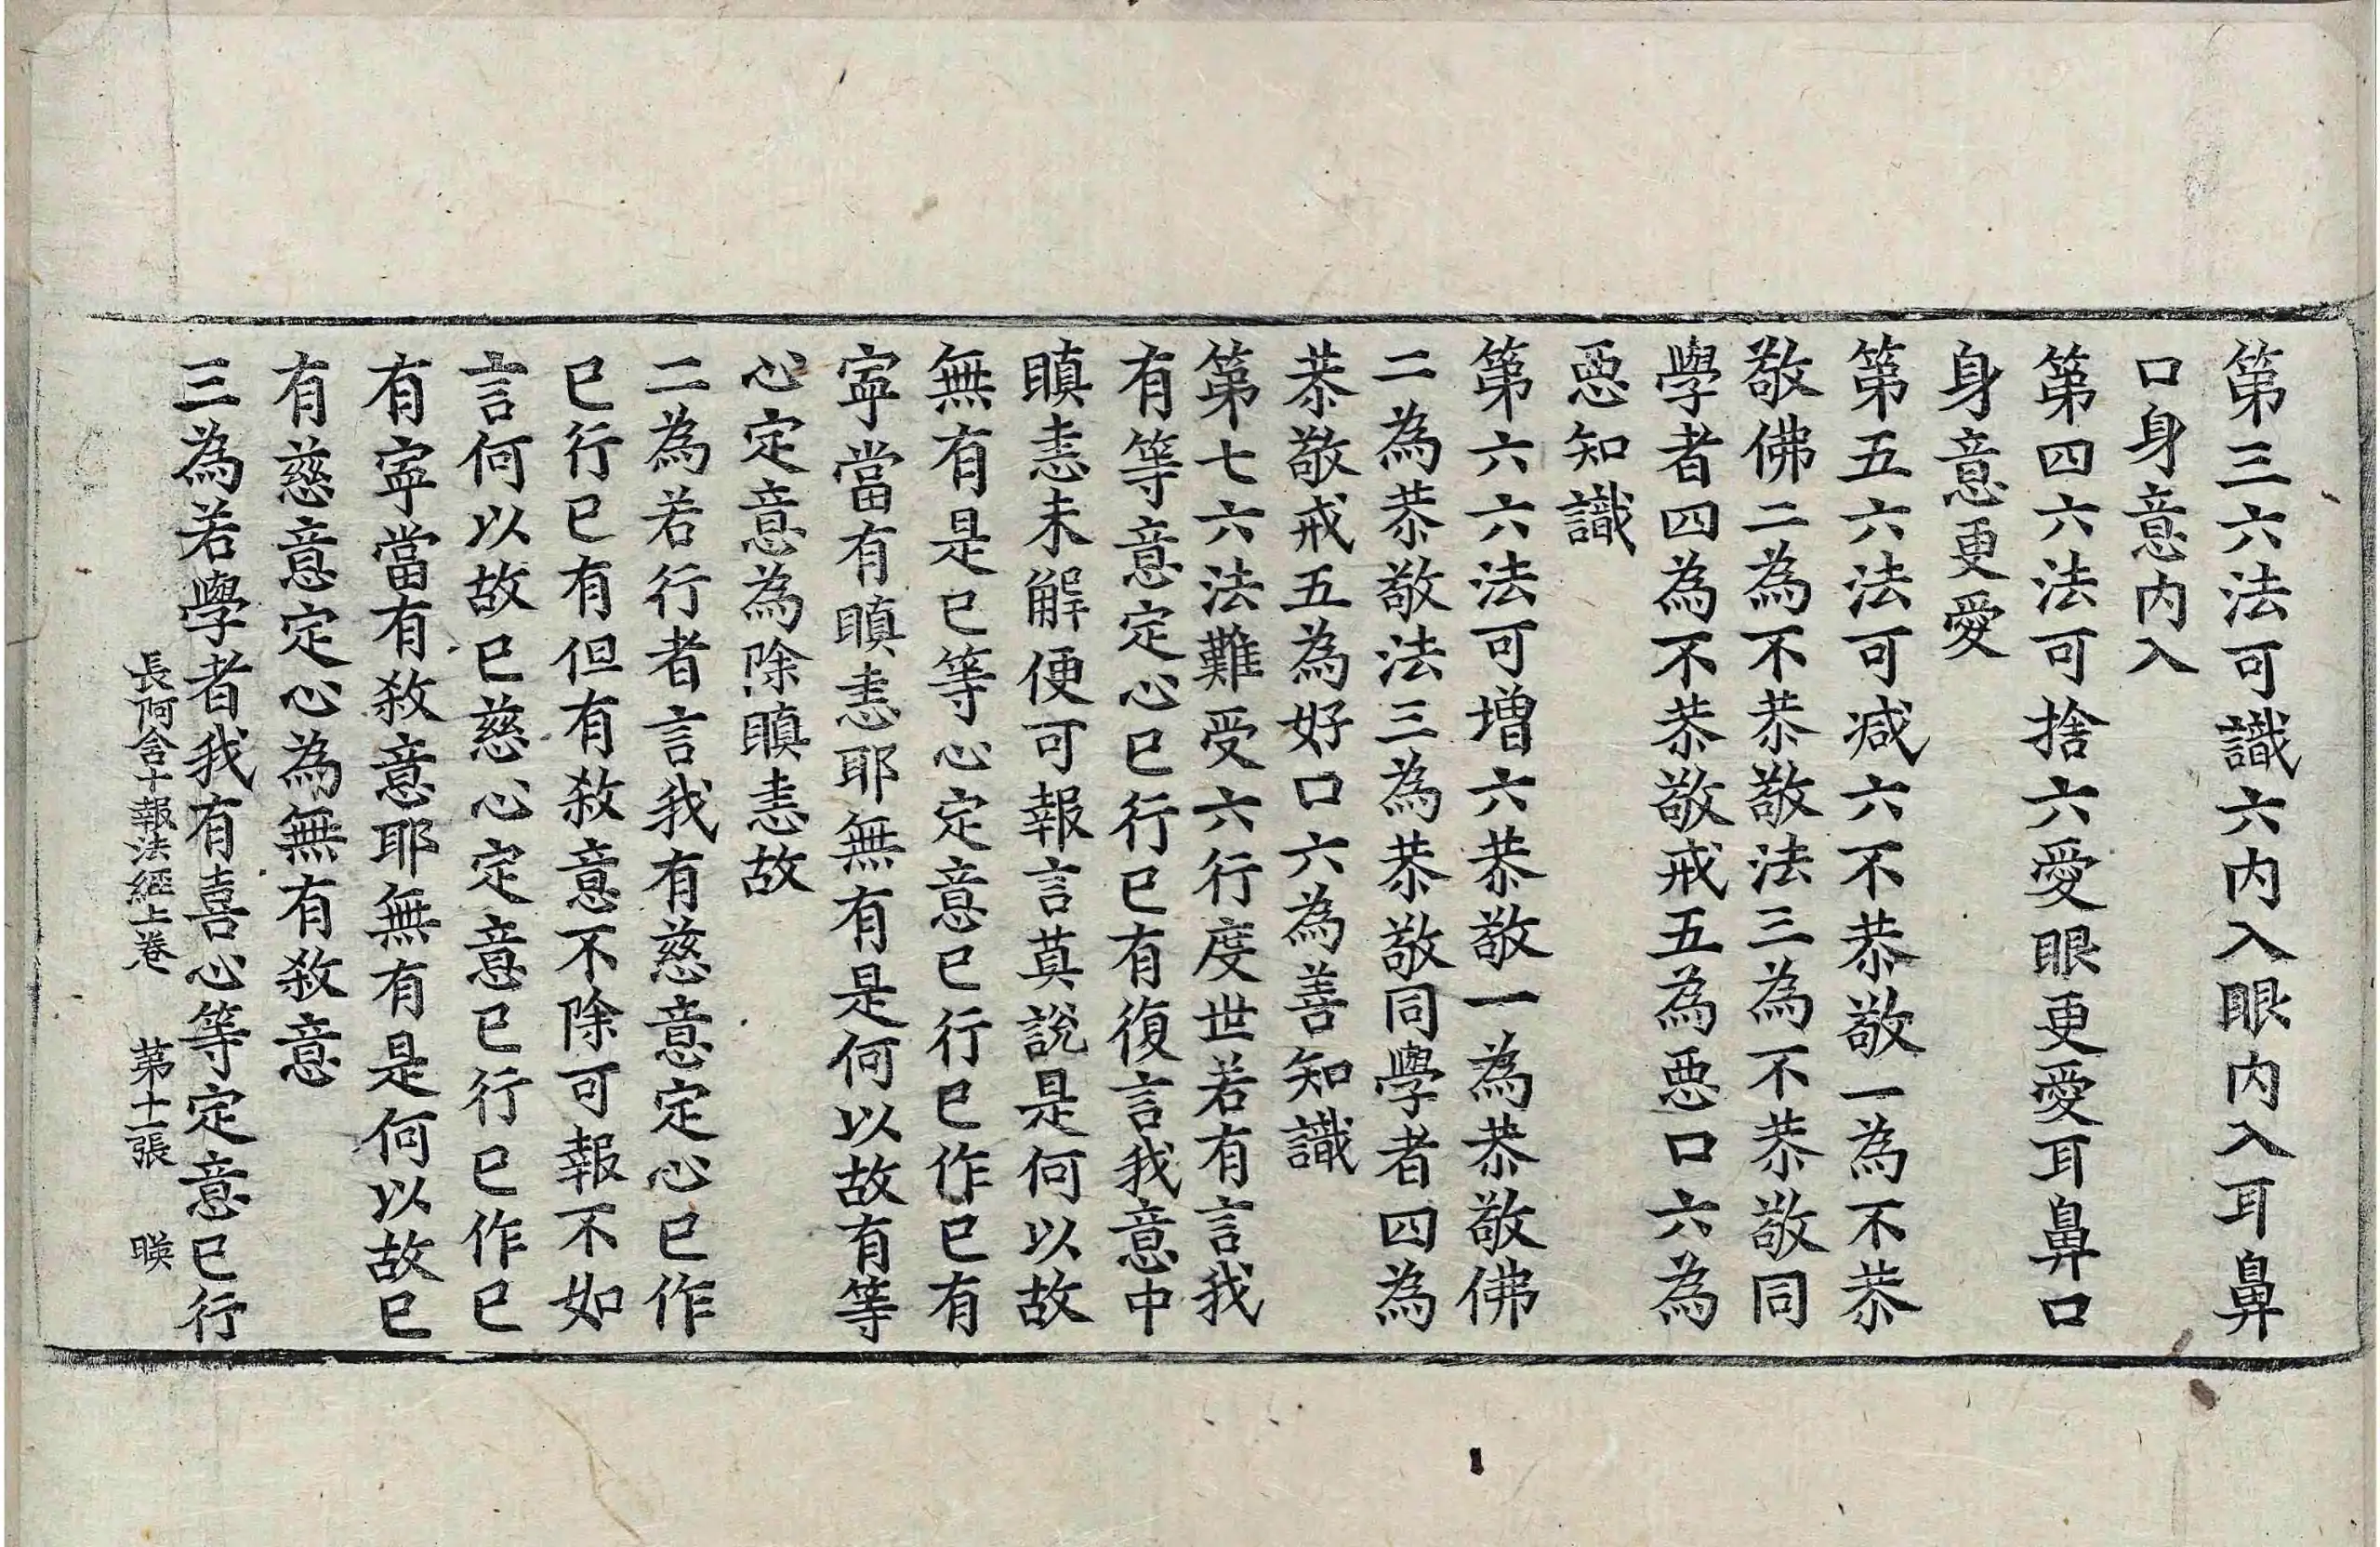 第三六法可識六內入眼內入耳鼻
口身意內入
第四六法可捨六愛眼更愛耳鼻口
身意更愛
第五六法可减六不恭敬一為不恭
敬佛二為不恭敬法三為不恭敬同
學者四為不恭敬戒五為惡口六為
惡知識
第六六法可增六恭敬一為恭敬佛
二為恭敬法三為恭敬同學者四為
恭敬戒五為好口六為善知識
第七六法難受六行度世若有言我
有等意定心已行已有復言我意中
瞋恚未解便可報言莫說是何以故
無有是已等心定意已行已作已有
寧當有瞋恚耶無有是何以故有等
心定意為除瞋恚故
二為若行者言我有慈意定心已作
已行已有但有敎意不除可報不如
言何以故已慈心定意已行已作已
有寧當有敎意耶無有是何以故已
有慈意定心為無有敎意
三為若學者我有喜心等定意已行
長阿含十報法經上卷 第十一張 暎